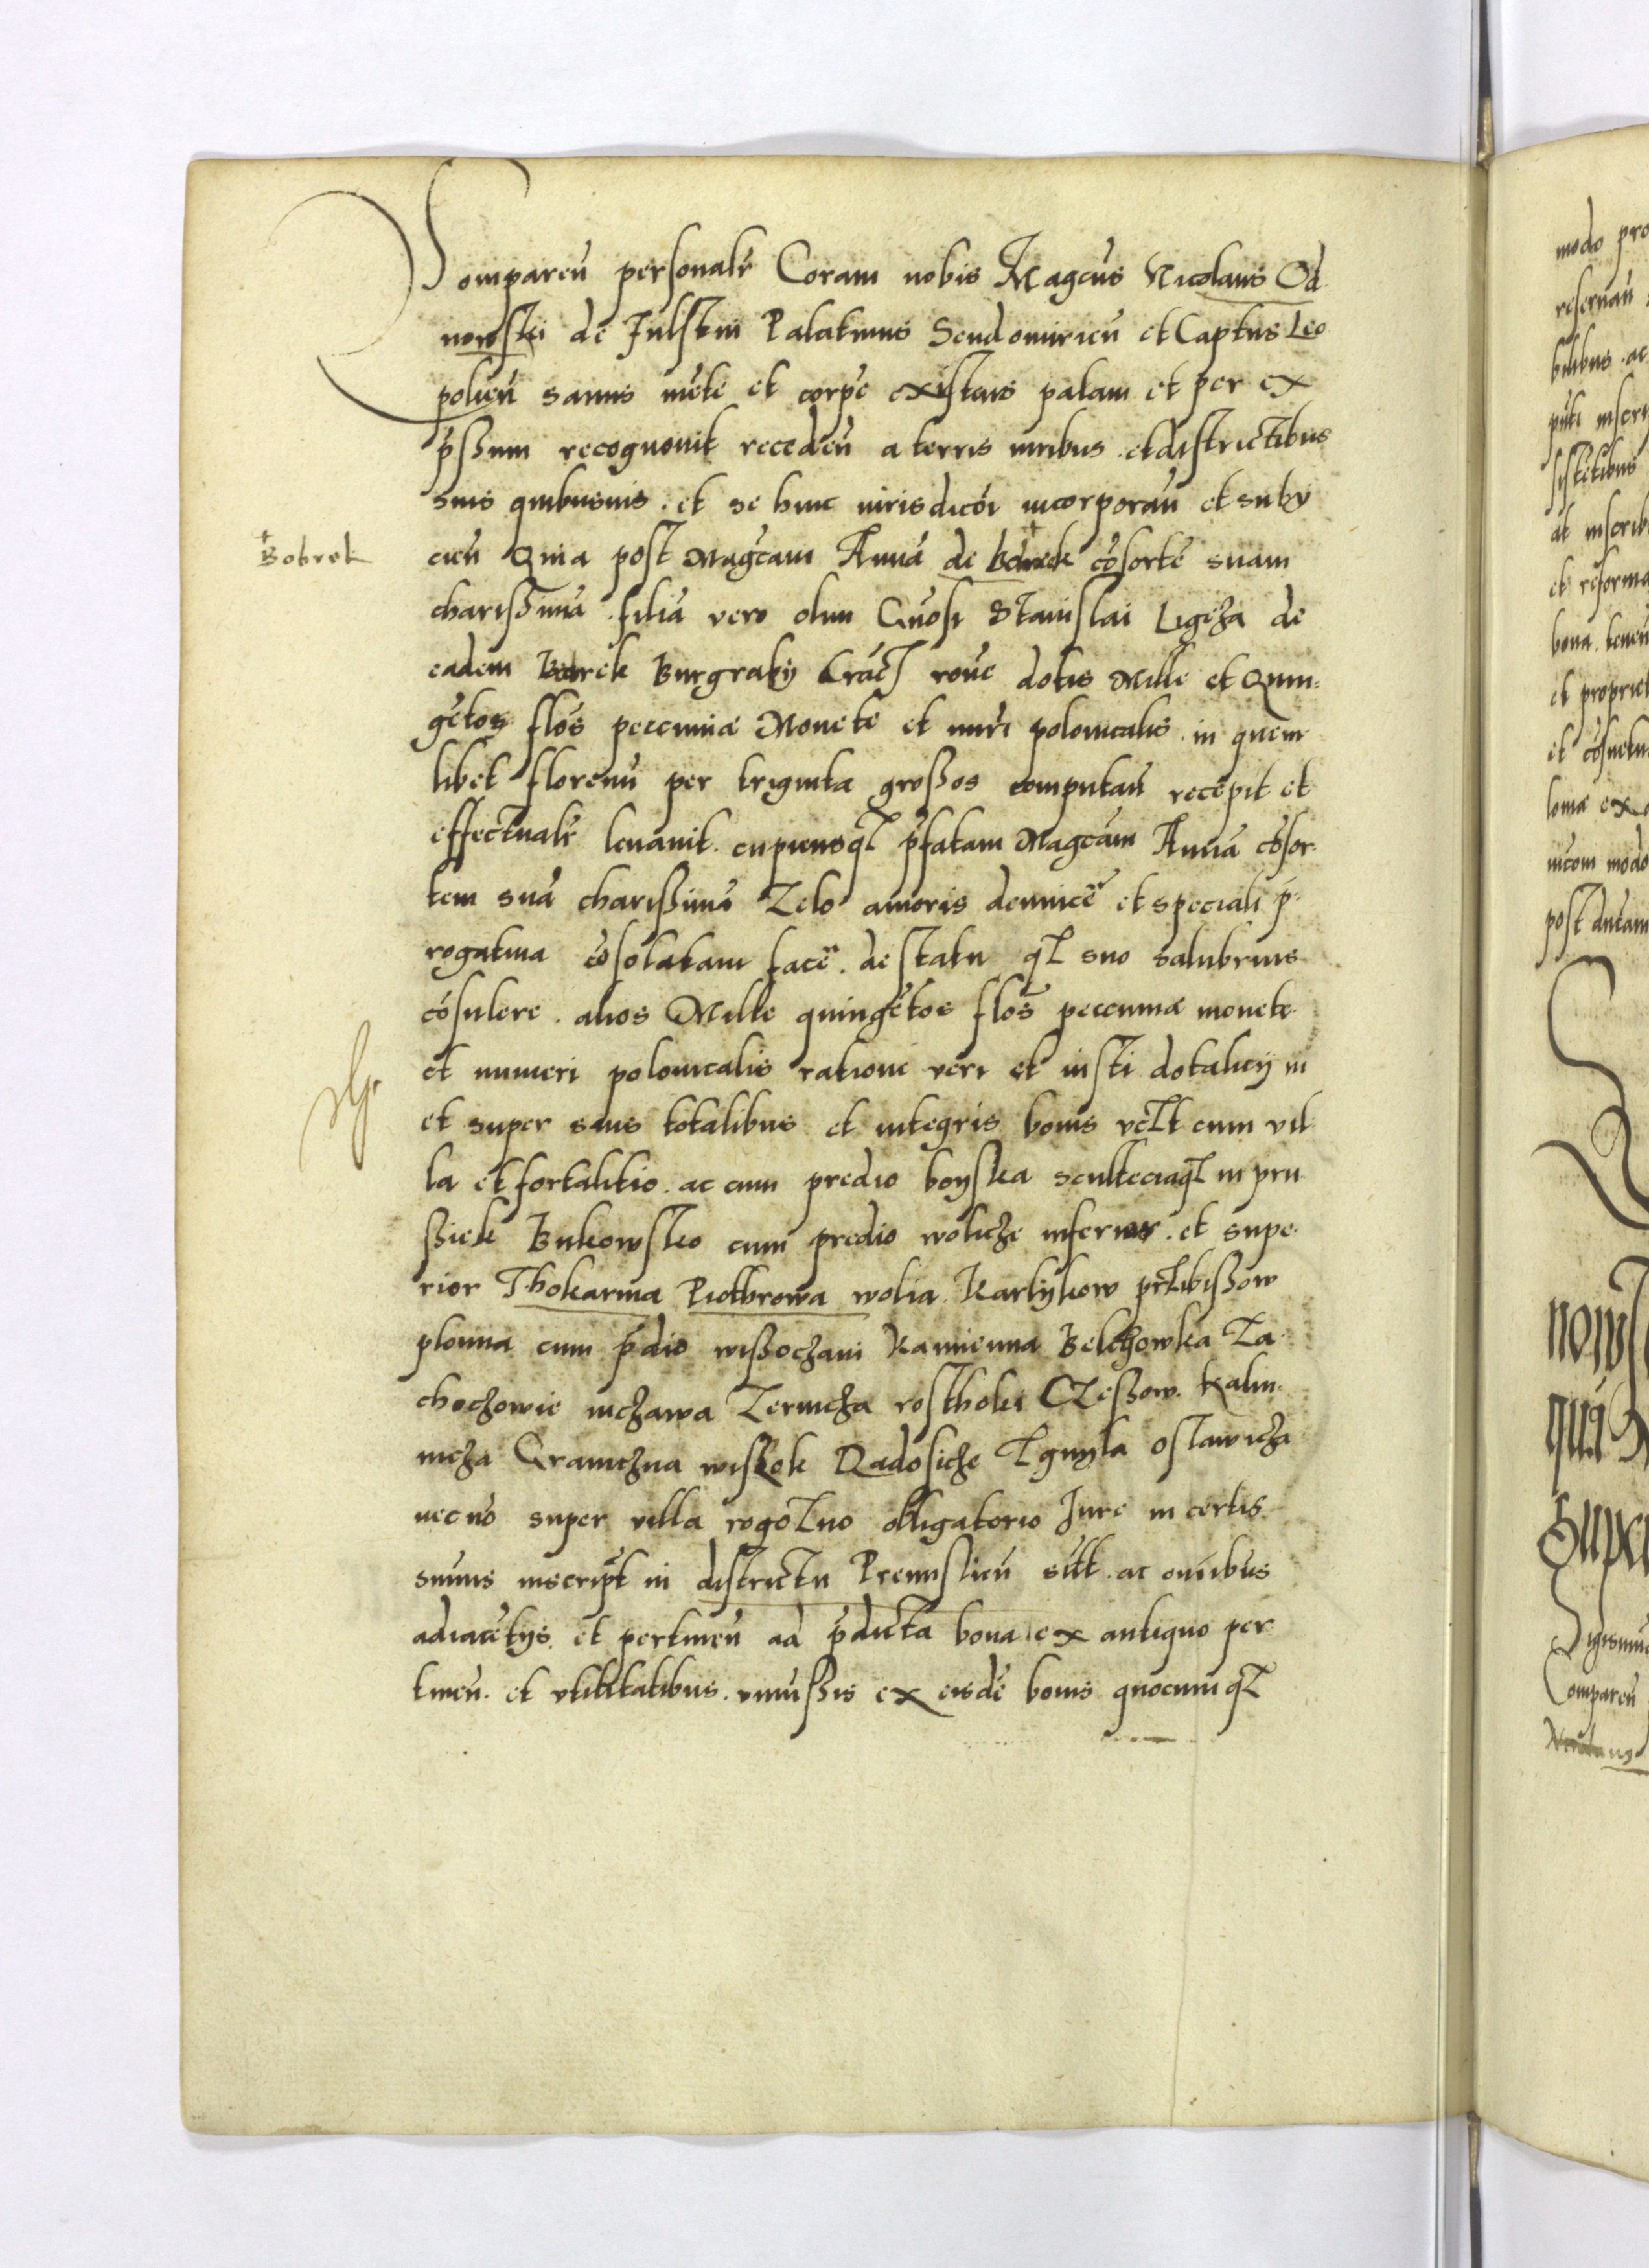 Compareñ personalr̃ Coram nobis Magcus Nicolaus Od
nowski de Fulsten Palatinus Sendomirieñ et Captus Leo
polieñ sanus mẽte et corpe existens palam et per ex
p̃ssum recognovit recedeñ a terris iuribus et districtibus
suis quibusuis et se huic iurisdicõi incorporañ et suby
cieñ Quia post Magcam Annã de Borek cõsortẽ suam
Bobrek
charissimã filiã vero olim Gnosi Stanislai Ligęza de
eadem Borek Burgraby Crac roñe dotis Mille et Quin
gẽtos flos peccuniæ Monete et nuri polonicalis in quem
libet florenũ per triginta grossos computañ recepit et
effectualr̃ levavit cupiensq p̃fatam Magcam Annã cõsor
tem suã charissimã Zelo amoris deuincẽ et speciali p̃
rogativa cõsolatam facẽ de statu q suo salubrius
cõsulere alios Mille quingẽtos flos peccuniæ monete
et numeri polonicalis ratione veri et iusti dotalicy in
et super suis totalibus et integris bonis vczt cum vil
la et fortalitio ac cum predio boyska sculteciaq in pru
ssiek Bukowsko cum predio woliche inferior et supe
rior Thokarnia Piothrowa wolia Karlykow przibissow
plonna cum p̃dio wissoczani Kamienna Belchowka Za
choczowie niczawa Zernicza rosthoki Czessow Kalni
nicza Graniczna wissok Radosicze Zgnyla oslawicza
necnõ super villa rogozno obligatorio Jure in certis
sumis inscript in districtu Premislieñ sitt ac omibus
adiacẽtys et pertineñ ad p̃dicta bona ex antiquo per
tineñ et utilitatibus universis ex eisdẽ bonis quocumq
modo pro
reservañ
bilibus ac
inscri
sistẽtibus
inscrib
et reforma
bona teneñ
et propriet
et cõsuetu
modo
post
nows
Supe
Sigismũ
Compareñ